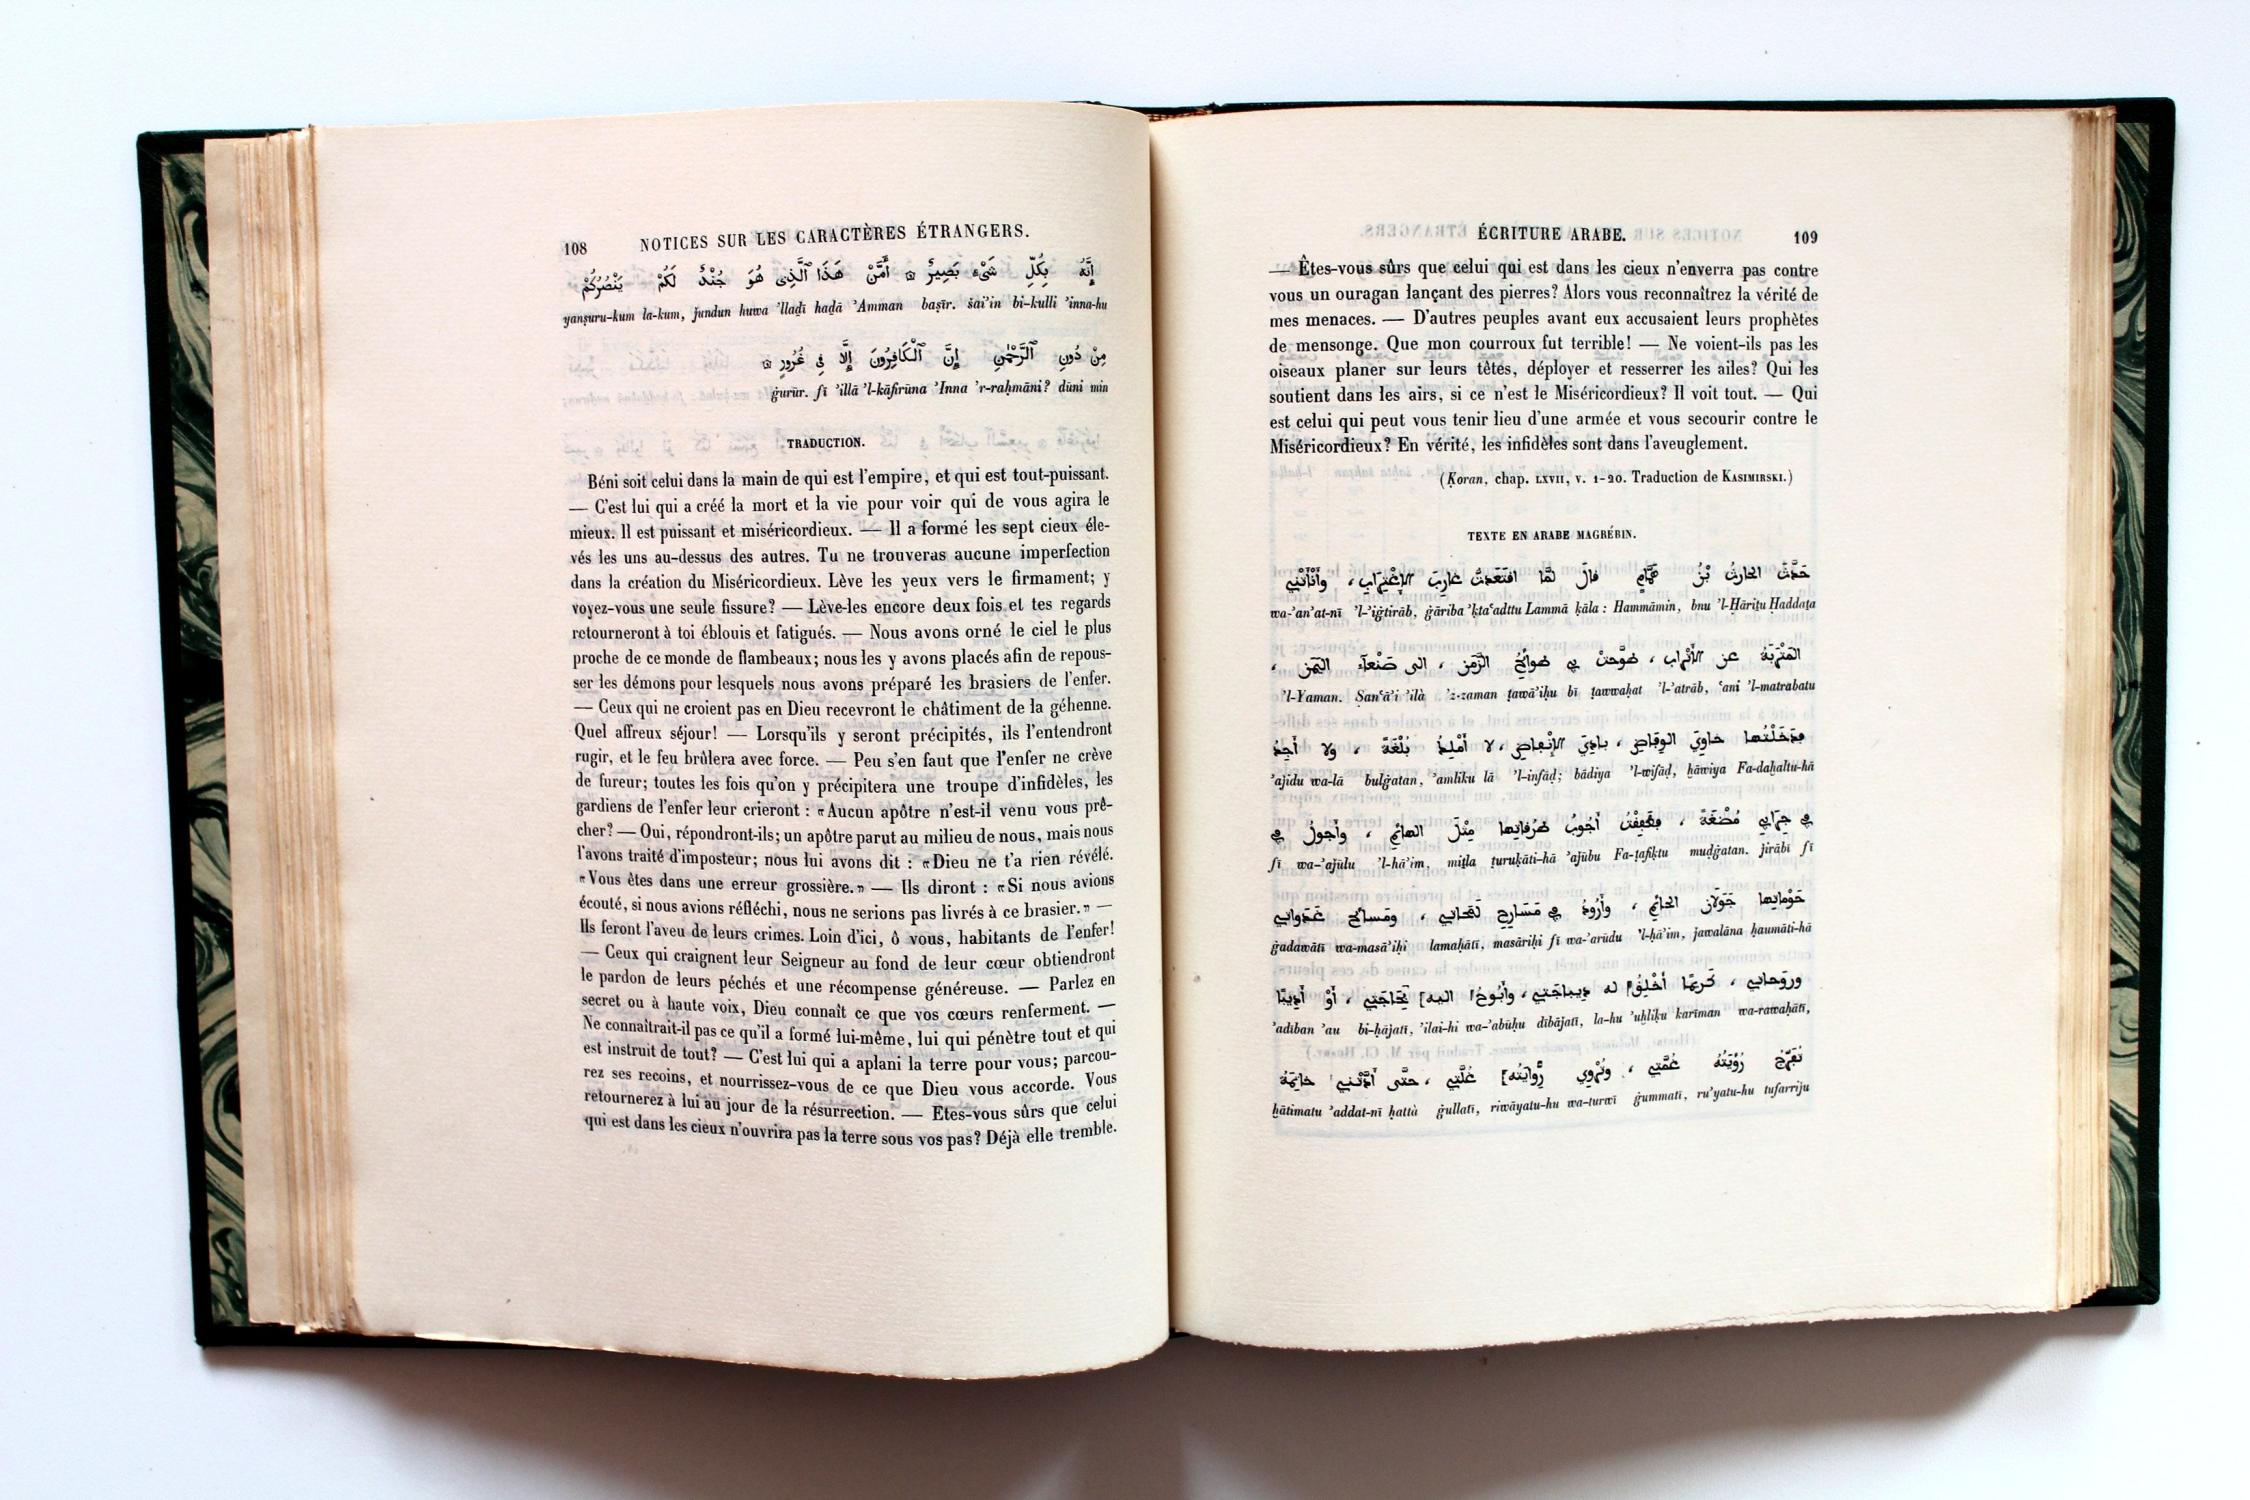 108 NOTICES SUR LES CARACTÈRES ÉTRANGERS.
إِنَّهُ بِكُلِّ شَيْءٍ بَصِيرٌ ۞ أَمَّنْ هَذَا ٱلَّذِى هُوَ جُنْدٌ لَكُمْ يَنْصُرُكُمْ
yanṣuru-kum la-kum, jundun huwa ’lladī hadā ’Amman baṣīr. šai’in bi-kulli ’inna-hu
مِنْ دُونِ ٱلرَّحْمٰنِ إِنَّ ٱلْكَافِرُونَ إِلَّا فِى غُرُورٍ ۞
ġurūr. fī ’illā ’l-kāfirūna ’Inna ’r-raḥmāni? dūni min
TRADUCTION.
Béni soit celui dans la main de qui est l'empire, et qui est tout-puissant.
— C'est lui qui a créé la mort et la vie pour voir qui de vous agira le
mieux. Il est puissant et miséricordieux. — Il a formé les sept cieux éle-
vés les uns au-dessus des autres. Tu ne trouveras aucune imperfection
dans la création du Miséricordieux. Lève les yeux vers le firmament; y
voyez-vous une seule fissure? — Lève-les encore deux fois et tes regards
retourneront à toi éblouis et fatigués. — Nous avons orné le ciel le plus
proche de ce monde de flambeaux; nous les y avons placés afin de repous-
ser les démons pour lesquels nous avons préparé les brasiers de l'enfer.
— Ceux qui ne croient pas en Dieu recevront le châtiment de la géhenne.
Quel affreux séjour! — Lorsqu'ils y seront précipités, ils l'entendront
rugir, et le feu brûlera avec force. — Peu s'en faut que l'enfer ne crève
de fureur; toutes les fois qu'on y précipitera une troupe d'infidèles, les
gardiens de l'enfer leur crieront : «Aucun apôtre n'est-il venu vous prê-
cher? — Oui, répondront-ils; un apôtre parut au milieu de nous, mais nous
l'avons traité d'imposteur; nous lui avons dit : «Dieu ne t'a rien révélé.
«Vous êtes dans une erreur grossière.» — Ils diront : «Si nous avions
écouté, si nous avions réfléchi, nous ne serions pas livrés à ce brasier.» —
Ils feront l'aveu de leurs crimes. Loin d'ici, ô vous, habitants de l'enfer!
— Ceux qui craignent leur Seigneur au fond de leur cœur obtiendront
le pardon de leurs péchés et une récompense généreuse. — Parlez en
secret ou à haute voix, Dieu connaît ce que vos cœurs renferment. —
Ne connaîtrait-il pas ce qu'il a formé lui-même, lui qui pénètre tout et qui
est instruit de tout? — C'est lui qui a aplani la terre pour vous; parcou-
rez ses recoins, et nourrissez-vous de ce que Dieu vous accorde. Vous
retournerez à lui au jour de la résurrection. — Etes-vous sûrs que celui
qui est dans les cieux n'ouvrira pas la terre sous vos pas? Déjà elle tremble.
ÉCRITURE ARABE. 109
— Êtes-vous sûrs que celui qui est dans les cieux n'enverra pas contre
vous un ouragan lançant des pierres? Alors vous reconnaîtrez la vérité de
mes menaces. — D'autres peuples avant eux accusaient leurs prophètes
de mensonge. Que mon courroux fut terrible! — Ne voient-ils pas les
oiseaux planer sur leurs têtes, déployer et resserrer les ailes? Qui les
soutient dans les airs, si ce n'est le Miséricordieux? Il voit tout. — Qui
est celui qui peut vous tenir lieu d'une armée et vous secourir contre le
Miséricordieux? En vérité, les infidèles sont dans l'aveuglement.
(Ḳoran, chap. LXVII, v. 1-20. Traduction de KASIMIRSKI.)
TEXTE EN ARABE MAGRÉBIN.
حَدَّثَ الحَارِثُ بْنُ هَمَّامٍ قالَ لَمَّا اقتَعَدتُّ غارِبَ الاِغْتِرابِ، وأَنْأَتْنِي
wa-’an’at-nī ’l-’iġtirāb, ġāriba ’ḳta‘adttu Lammā ḳāla : Hammāmin, bnu ’l-Ḥāriṯu Haddaṯa
المَتْرَبَةُ عنِ الأَتْرابِ، طوَّحتْ بِي طوائحُ الزَّمَنِ، الى صَنْعاءَ اليَمَنِ،
’l-Yaman. Ṣan‘ā’i ’ilà ’z-zaman ṭawā’iḥu bī ṭawwaḥat ’l-’atrāb, ‘ani ’l-matrabatu
فدَخَلْتُها خاوِيَ الوِفاضِ، بادِيَ الاِنْفاضِ، لا أَمْلِكُ بُلْغَةً، ولا أَجِدُ
’ajidu wa-lā bulġatan, ’amliku lā ’l-infāḍ; bādiya ’l-wifāḍ, ḫāwiya Fa-daḫaltu-hā
فِي جِرابِي مُضْغَةً، فطَفِقْتُ أَجُوبُ طُرُقاتِها مِثْلَ الهائِمِ، وأَجولُ فِي
fī wa-’ajūlu ’l-hā’im, miṯla ṭuruḳāti-hā ’ajūbu Fa-ṭafiḳtu muḍġatan. jirābī fī
حَوْماتِها جَوَلانَ الحائِمِ، وأَرُودُ فِي مَسَارِحِ لَمَحاتِي، ومَسائحِ غَدَواتِي
ġadawātī wa-masā’iḥi lamaḥātī, masāriḥi fī wa-’arūdu ’l-ḥā’im, jawalāna ḥaumāti-hā
ورَوَحاتِي، كَرِيمًا أُخْلِقُ له دِيباجَتِي، وأَبُوحُ [اليه] بِحَاجَتِي، أَوْ أَدِيبًا
’adīban ’au bi-ḥājatī, ’ilai-hi wa-’abūḥu dībājatī, la-hu ’uḫliḳu karīman wa-rawaḥātī,
تُفَرِّجُ رُؤْيَتُهُ غُمَّتِي، وتُرْوِي [رِوايَتُهُ] غُلَّتِي، حتَّى أَدَّتْنِي خاتِمَةُ
ḫātimatu ’addat-nī ḥattà ġullatī, riwāyatu-hu wa-turwī ġummatī, ru’yatu-hu tufarriju